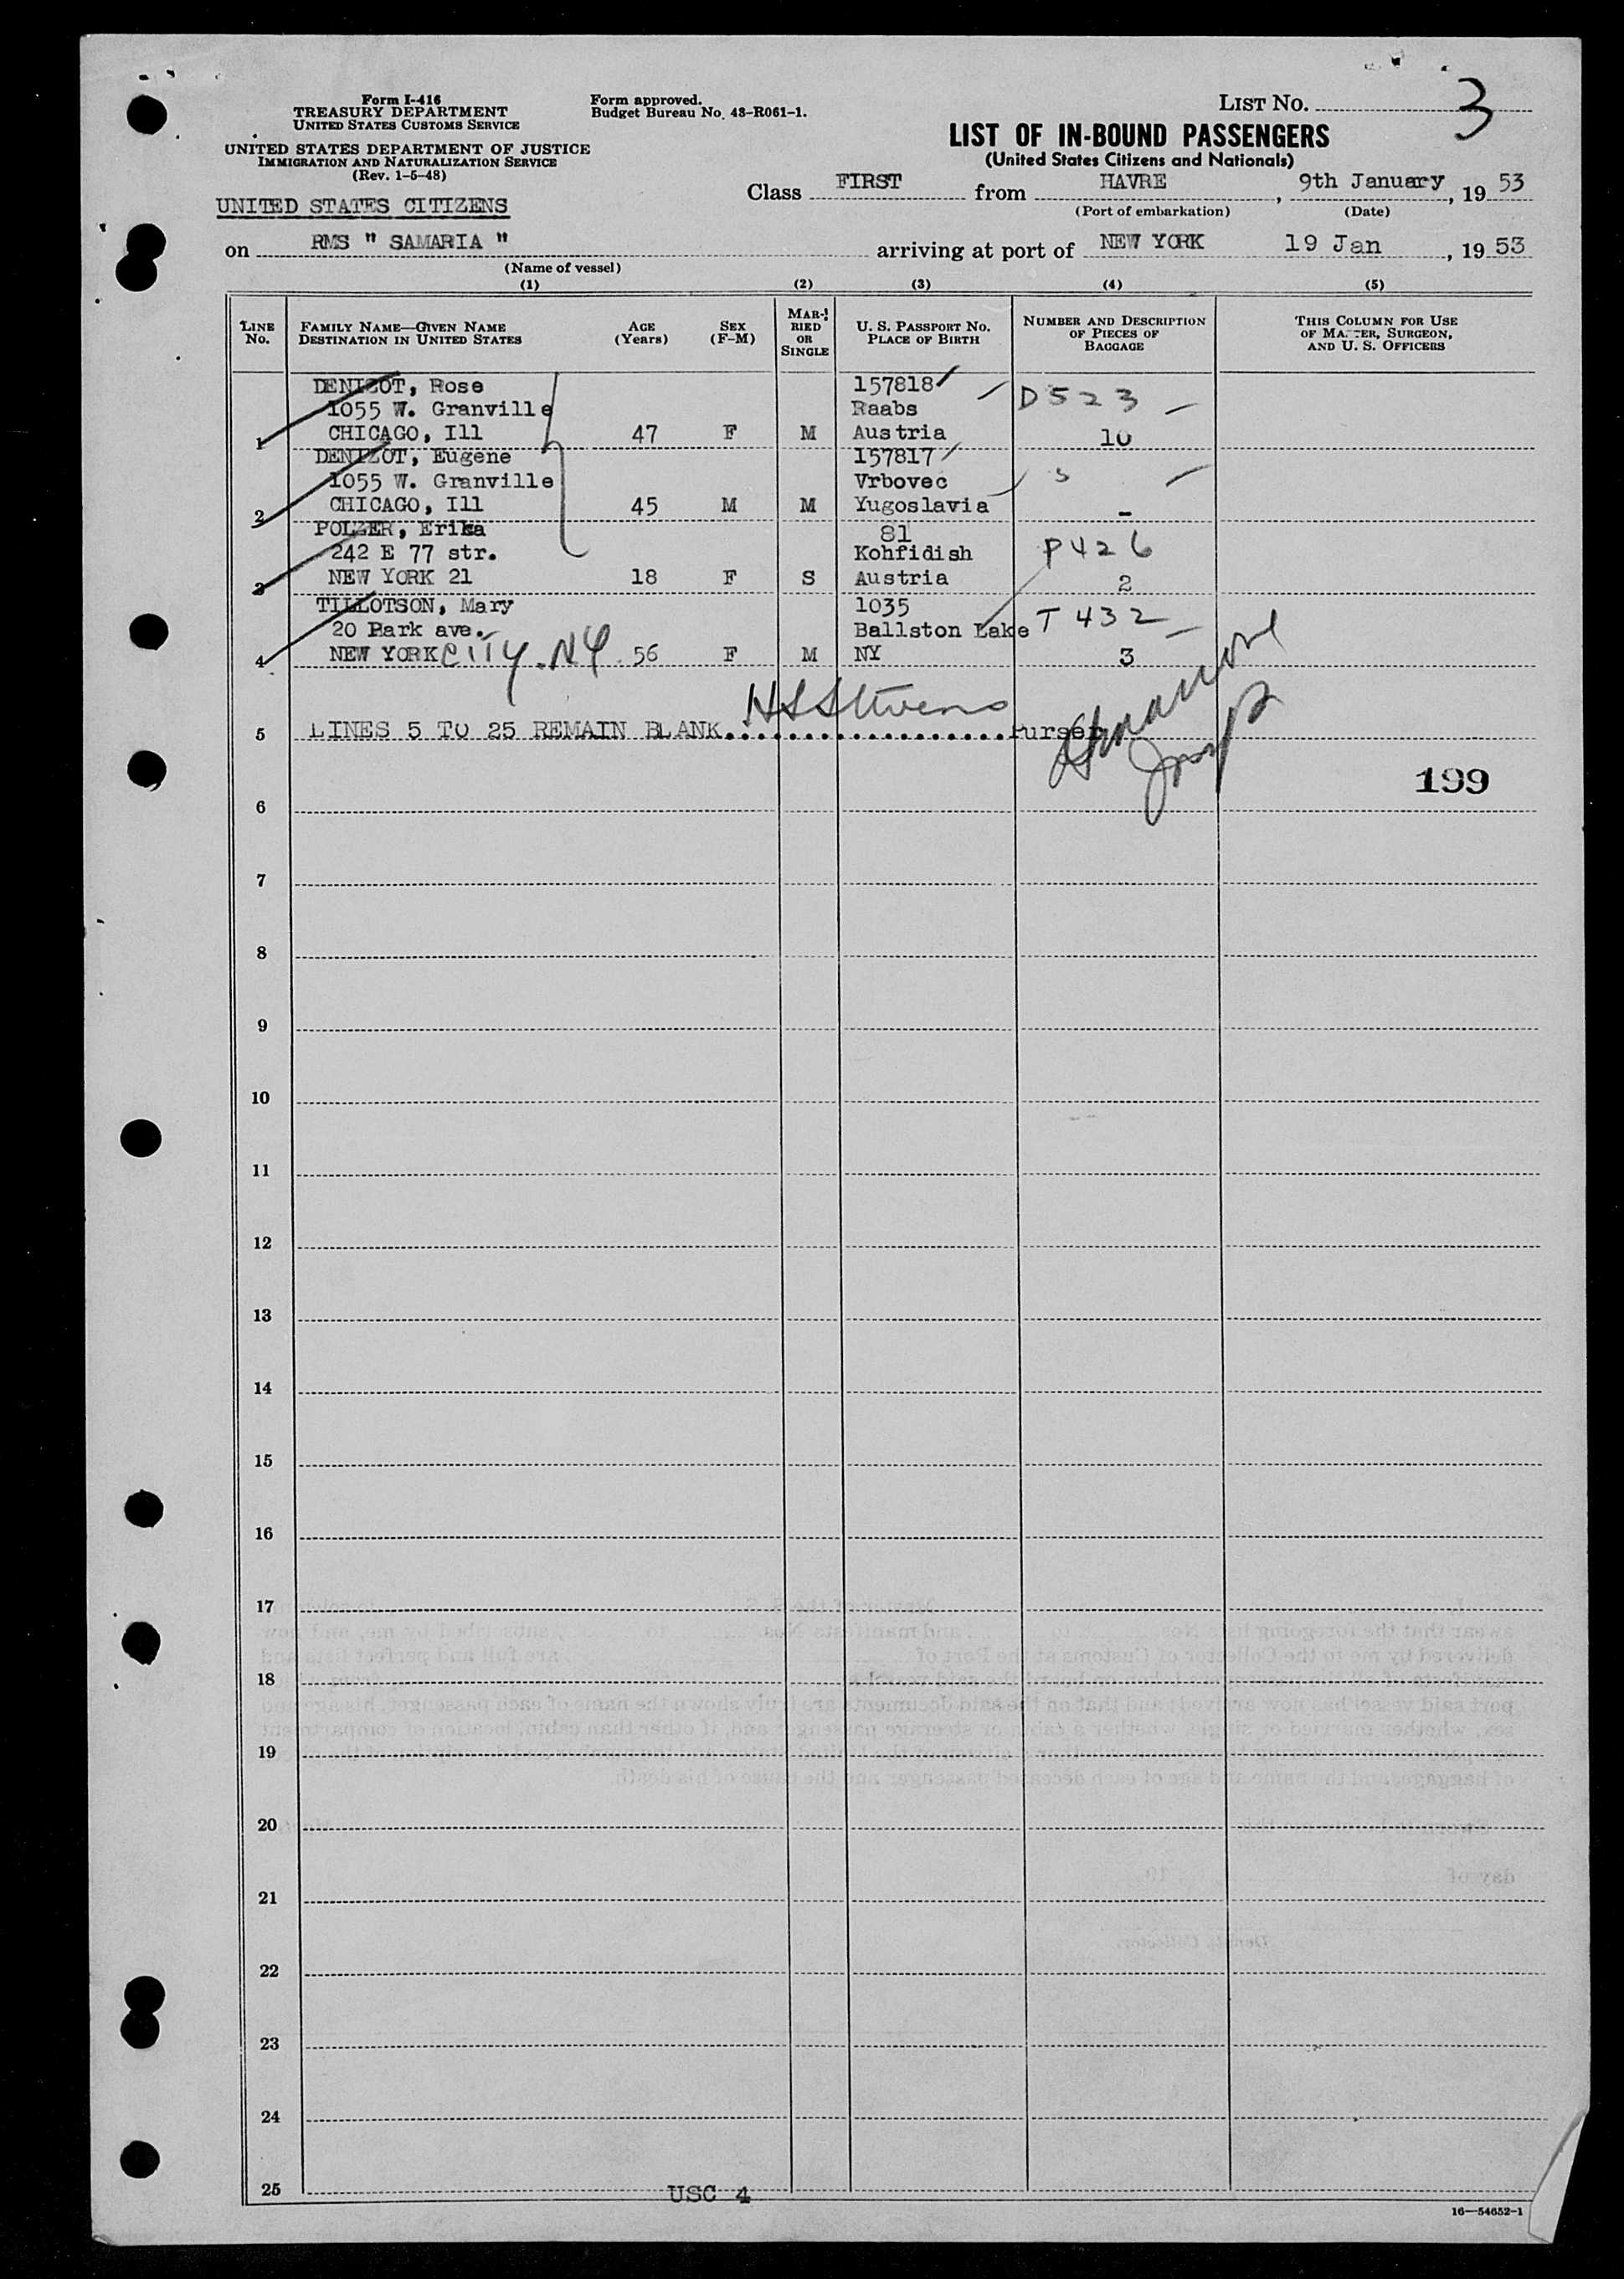 Form I-416
TREASURY DEPARTMENT
UNITED STATES CUSTOMS SERVICE
UNITED STATES DEPARTMENT OF JUSTICE
IMMIGRATION AND NATURALIZATION SERVICE
(Rev. 1-5-48)
UNITED STATES CITIZENS
Form approved.
Budget Bureau No. 43-R061-1.
LIST NO. 3
LIST OF IN-BOUND PASSENGERS
(United States Citizens and Nationals)
Class FIRST from HAVRE, 9th January, 19 53
(Port of embarkation) (Date)
on RMS " SAMARIA " arriving at port of NEW YORK 19 Jan, 19 53
(Name of vessel)
(1) (2) (3) (4) (5)
LINE NO. FAMILY NAME—GIVEN NAME DESTINATION IN UNITED STATES AGE (Years) SEX (F-M) MARRIED OR SINGLE U. S. PASSPORT NO. PLACE OF BIRTH NUMBER AND DESCRIPTION OF PIECES OF BAGGAGE THIS COLUMN FOR USE OF MASTER, SURGEON, AND U. S. OFFICERS
DENIZOT, Rose 157818
1055 W. Granville Raabs D523
1 CHICAGO, Ill 47 F M Austria 10
DENIZOT, Eugene 157817
1055 W. Granville Vrbovec
2 CHICAGO, Ill 45 M M Yugoslavia -
POLZER, Erika 81
242 E 77 str. Kohfidish P426
3 NEW YORK 21 18 F S Austria 2
TILLOTSON, Mary 1035
20 Park ave. Ballston Lake T432
4 NEW YORK CITY. NY. 56 F M NY 3
HSStevens
5 LINES 5 TO 25 REMAIN BLANK..................Purser
199
6
7
8
9
10
11
12
13
14
15
16
17
18
19
20
21
22
23
24
25
USC 4
16—54652-1